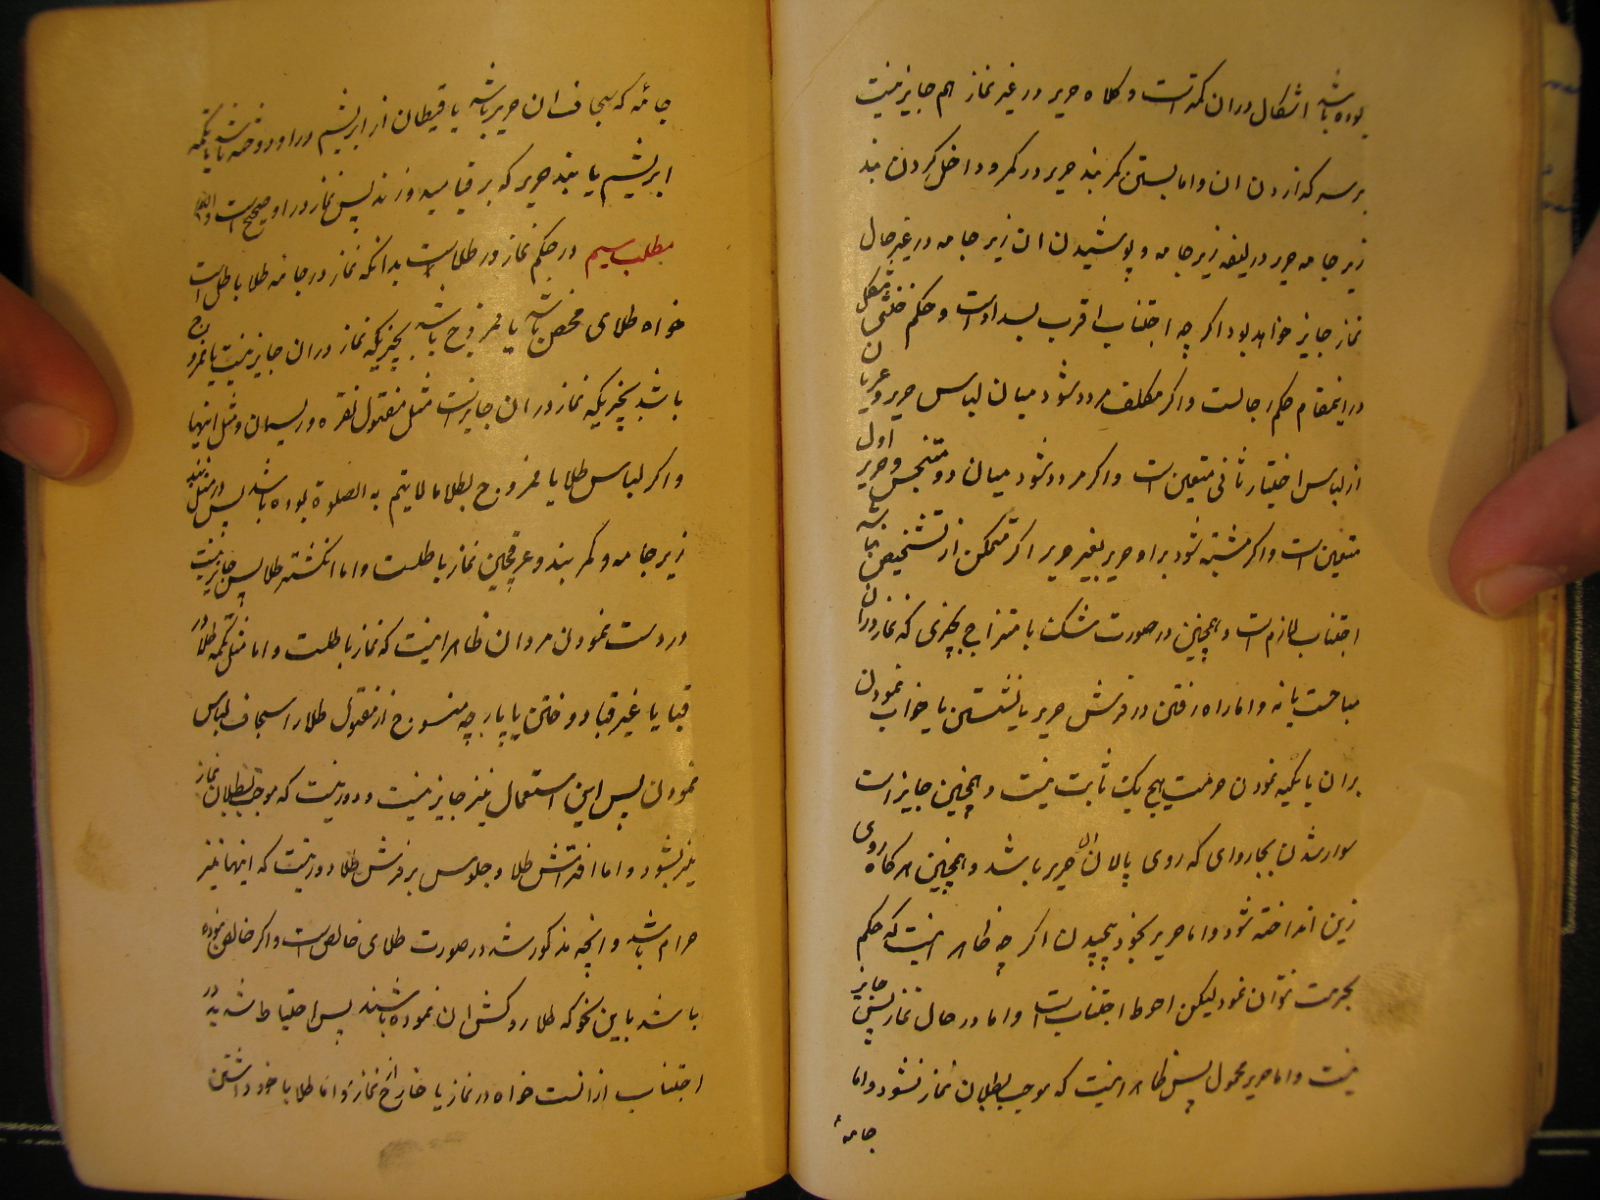 بوده باشد اشکال در ان کمتر است و کلاه حریر در غیر نماز هم جایز نیست
بر سر گذاردن ان و اما بستن کمر بند حریر در کمر و داخل کردن بند
زیر جامه حریر در لیفه زیر جامه و پوشیدن ان زیر جامه در غیر حال
نماز جایز خواهد بود اگر چه اجتناب اقرب بسداد است و حکم خنثی مشکل
در اینمقام حکم رجالست و اگر مکلف مردد شود میان لباس حریر و عریان
از لباس اختیار ثانی متعین است و اگر مردد شود میان دو متنجس و حریر اول
متعین است و اگر مشتبه شود بر او حریر بغیر حریر اگر متمکن از تشخیص نباشد
اجتناب لازم است و همچنین در صورت شک با متزاج بچیزی که نماز در ان
مباحست یا نه و اما راه رفتن در فرش حریر یا نشستن یا خواب نمودن
بر ان یا تکیه نمودن حرمت هیچ یک ثابت نیست و همچنین جایز است
سوار شدن بچاروای که روی پالان ان حریر باشد و همچنین هر گاه روی
زین انداخته شود و اما حریر بخود پیچیدن اگر چه ظاهر اینست که حکم
بحرمت نتوان نمود لیکن احوط اجتناب است و اما در حال نماز پس جایز
نیست و اما حریر محمول پس ظاهر اینست که موجب بطلان نماز نشود و اما
جامهٔ
جامهٔ که سجاف ان حریر باشد یا قیطان از ابریشم در او دوخته باشد یا تکمه
ابریشم یا بند حریر که بر قبا میدوزند پس نماز در او صحیح است والله
مطلب سیم در حکم نماز در طلا است بدانکه نماز در جامهٔ طلا باطل است
خواه طلای محض باشد یا ممزوج باشد بچیزیکه نماز در ان جایز نیست یا ممزوج
باشد بچیزیکه نماز در ان جایز است مثل مفتول نقره و ریسمان و مثل اینها
و اگر لباس طلا یا ممزوج بطلا ما لا یتم به الصلوة بوده باشد پس در مثل بند
زیر جامه و کمر بند و عرقچین نماز باطلست و اما انگشتر طلا پس جایز نیست
در دست نمودن مردان ظاهر اینست که نماز باطلست و اما مثل تکمه طلا در
قبا یا غیر قبا دوختن یا پارچه منسوج از مفتول طلا را سجاف لباس
نمودن پس این استعمال نیز جایز نیست و دور نیست که موجب بطلان نماز
نیز بشود و اما افتراش طلا و جلوس بر فرش طلا دور نیست که اینها نیز
حرام باشد و انچه مذکور شد در صورت طلای خالص است و اگر خالص نبوده
باشد باین نحو که طلا روکش ان نموده باشند پس احتیاط شدید در
اجتناب از انست خواه در نماز یا خارج از نماز و اما طلا با خود داشتن